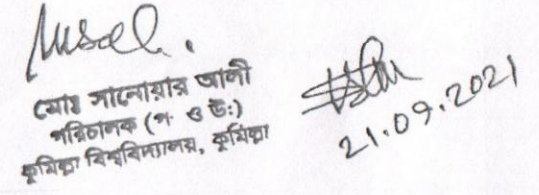 মোঃ সানোয়ার আলী
পরিচালক (প ও উঃ)
কুমিল্লা বিশ্ববিদ্যালয়, কুমিল্লা
21.09.2021